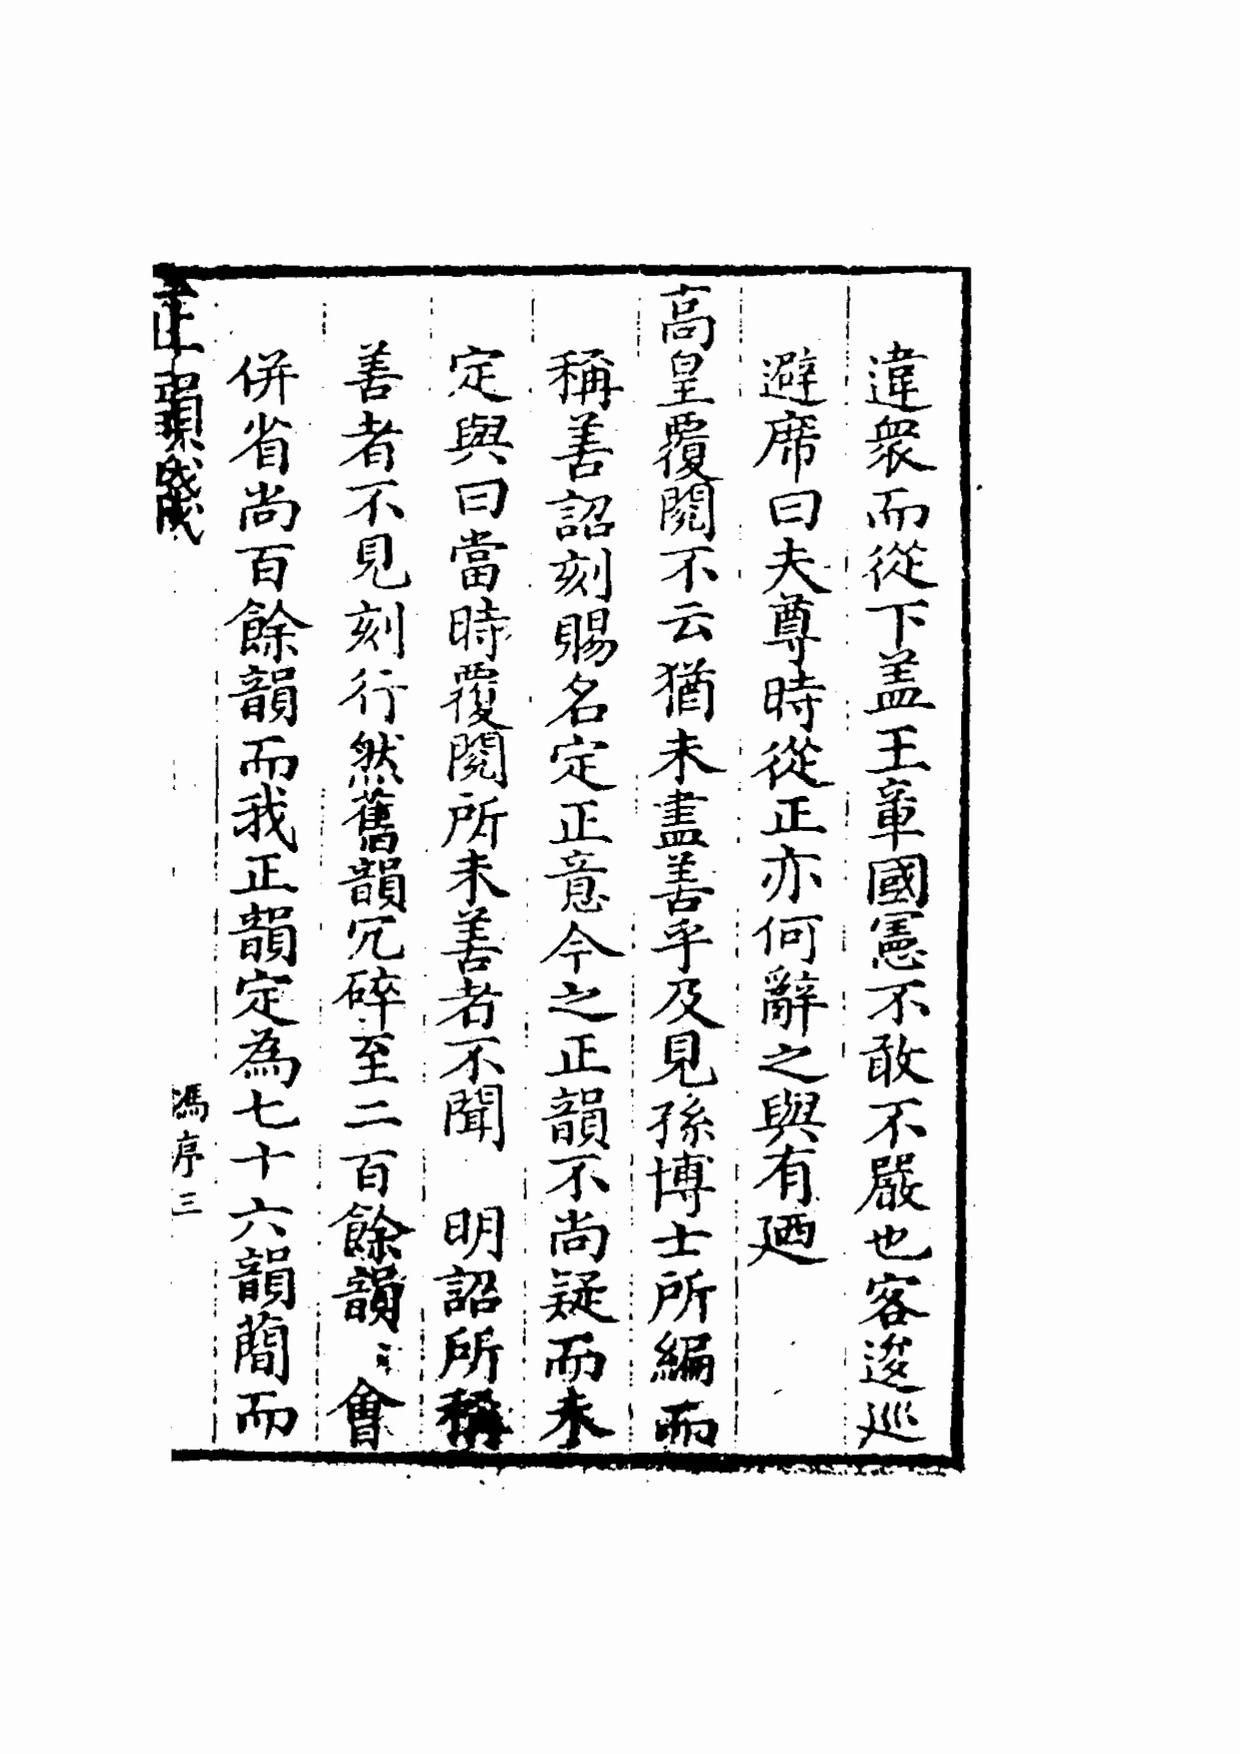 違衆而從下盖王章國憲不敢不嚴也客逡巡
避席曰夫尊時從正亦何辭之與有廼
高皇覆閱不云猶未盡善乎及見孫博士所編而
稱善詔刻賜名定正意今之正韻不尚疑而未
定與曰當時覆閱所未善者不聞　明詔所稱
善者不見刻行然舊韻冗碎至二百餘韻　會
併省尚百餘韻而我正韻定為七十六韻蕳而
正韻箋
馮序三